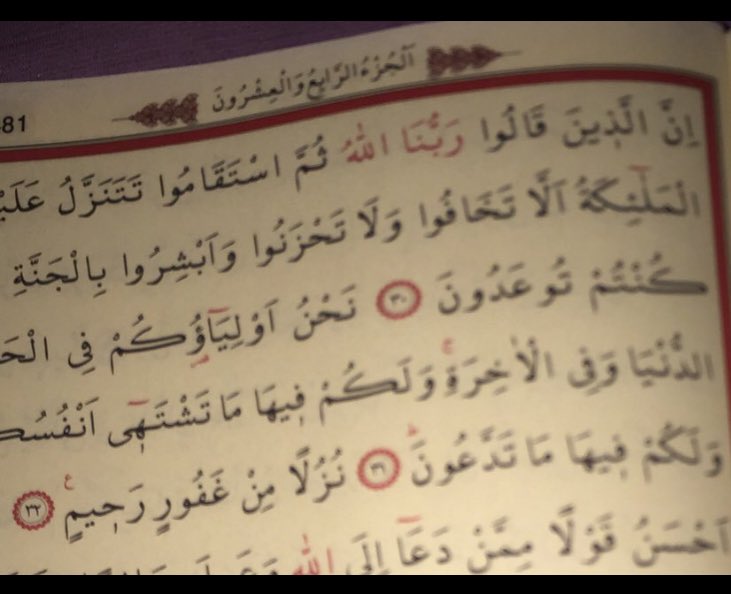 اَلْجُزْءُ الرَّابِعُ وَالْعِشْرُونَ
481
اِنَّ الَّذ۪ينَ قَالُوا رَبُّنَا اللّٰهُ ثُمَّ اسْتَقَامُوا تَتَنَزَّلُ
الْمَلٰٓئِكَةُ اَلَّا تَخَافُوا وَلَا تَحْزَنُوا وَاَبْشِرُوا بِالْجَنَّةِ
كُنْتُمْ تُوعَدُونَ ٣٠ نَحْنُ اَوْلِيَٓاؤُ۬كُمْ فِي
الدُّنْيَا وَفِي الْاٰخِرَةِۚ وَلَكُمْ ف۪يهَا مَا تَشْتَه۪ٓي
وَلَكُمْ ف۪يهَا مَا تَدَّعُونَۜ ٣١ نُزُلًا مِنْ غَفُورٍ رَح۪يمٍ۟ ٣٢
اَحْسَنُ قَوْلًا مِمَّنْ دَعَٓا اِلَى اللّٰهِ